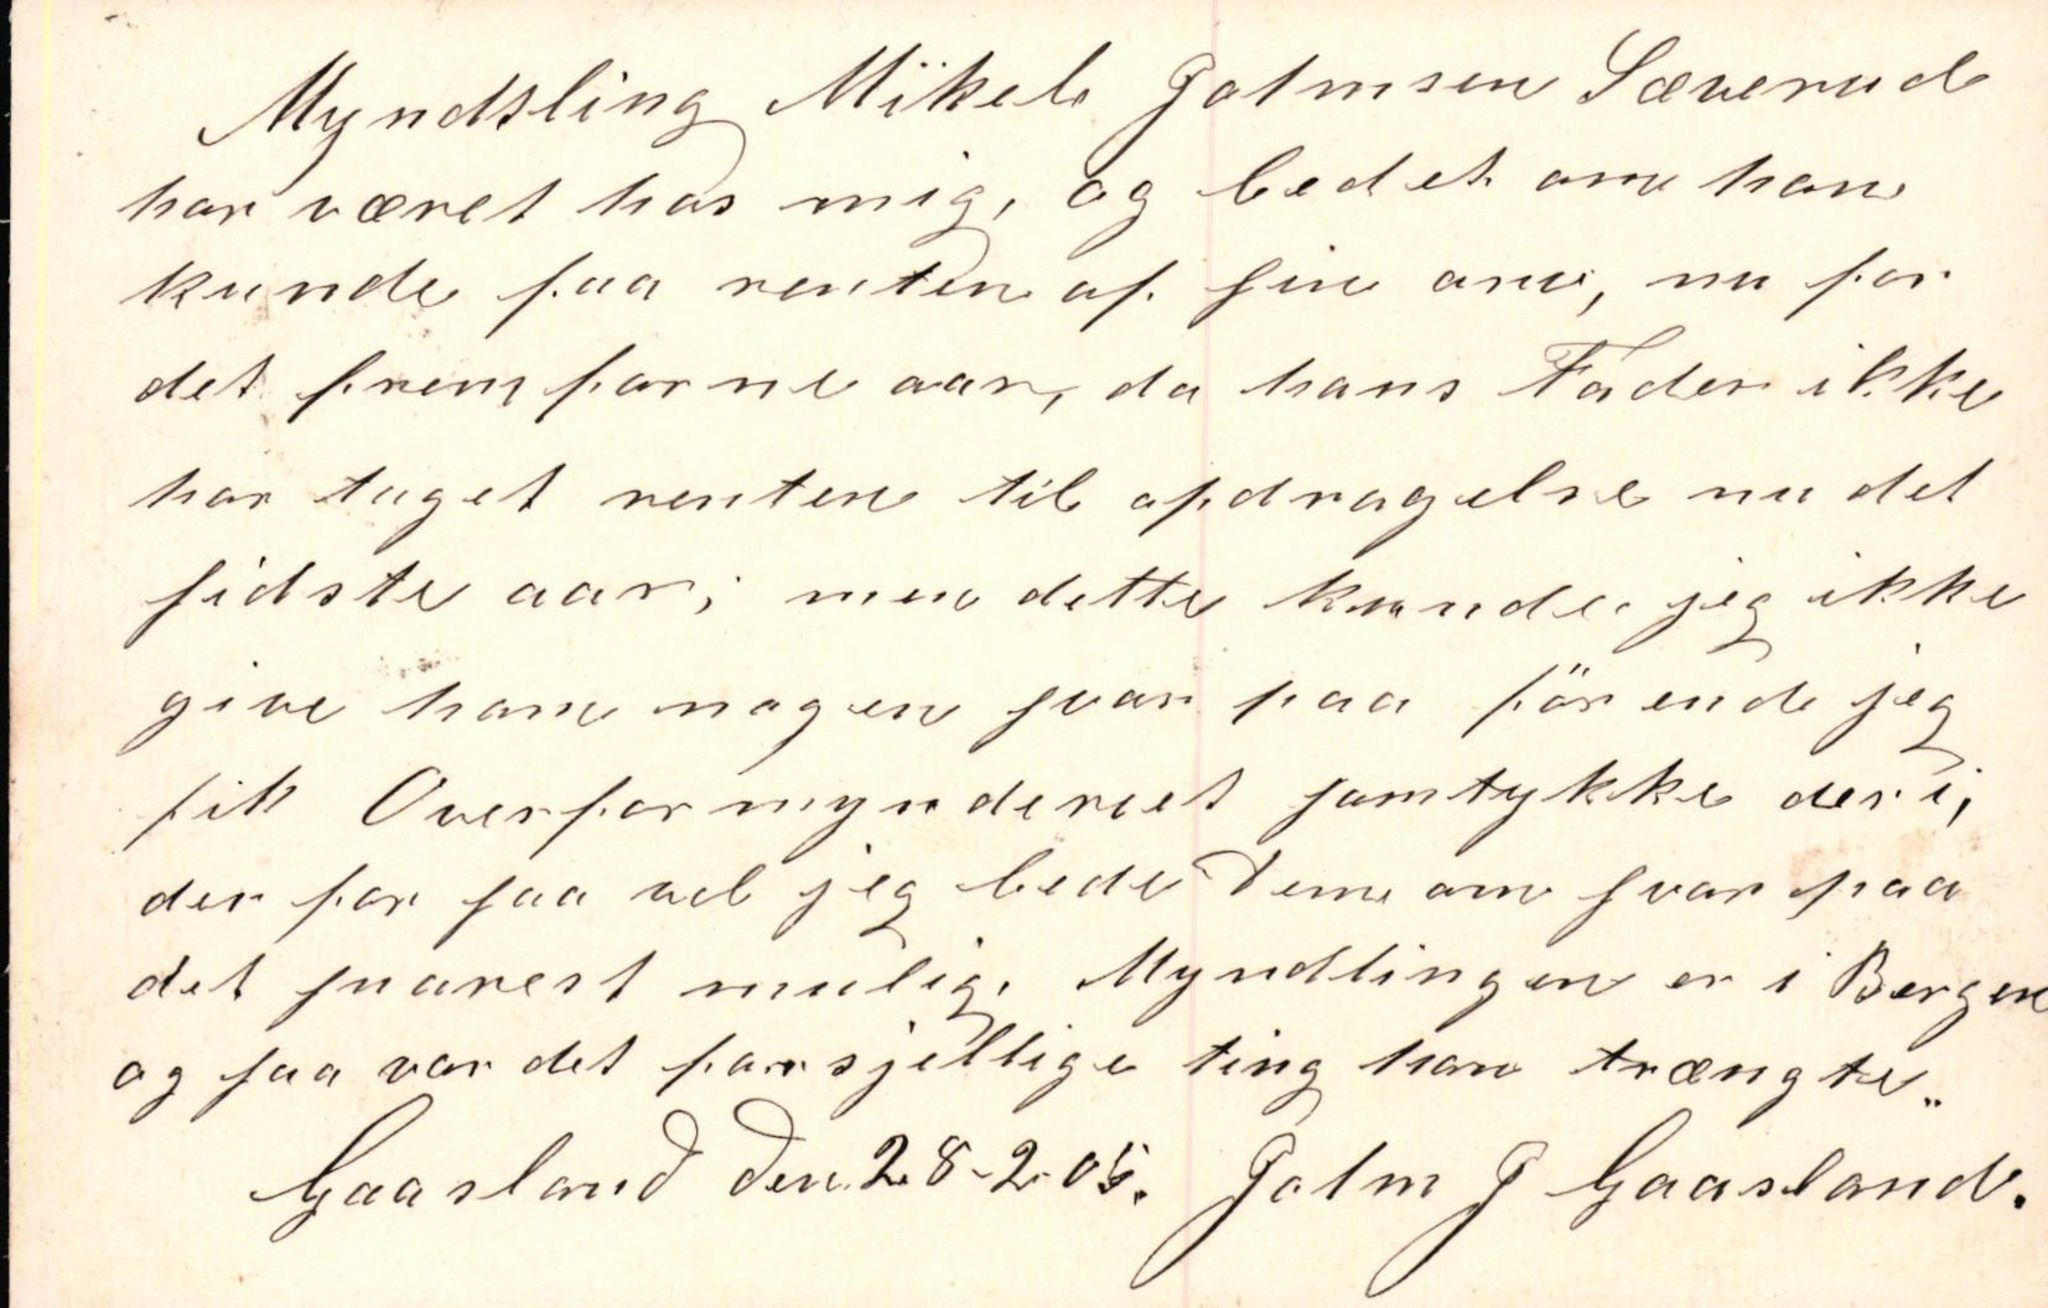 Myndsling Mikel Jolmsen Sæverud
har været hos mig, og bedet om han
kunde faa renten af sin arv, nu for
det fremfarne aar, da hans Fader ikke
har taget renten til opdragelse nu det
sidste aar; men dette kunde jeg ikke
give ham nogen svar paa för end jeg
fik Overformynderiet samtykke deri,
der for saa vel jeg bede Dem om svar paa
det snarest mulig. Myndlingen er i Bergen
og saa var det forsjellige ting han trængte„
Gaasland den 28-2-05. Jolm J Gaasland.